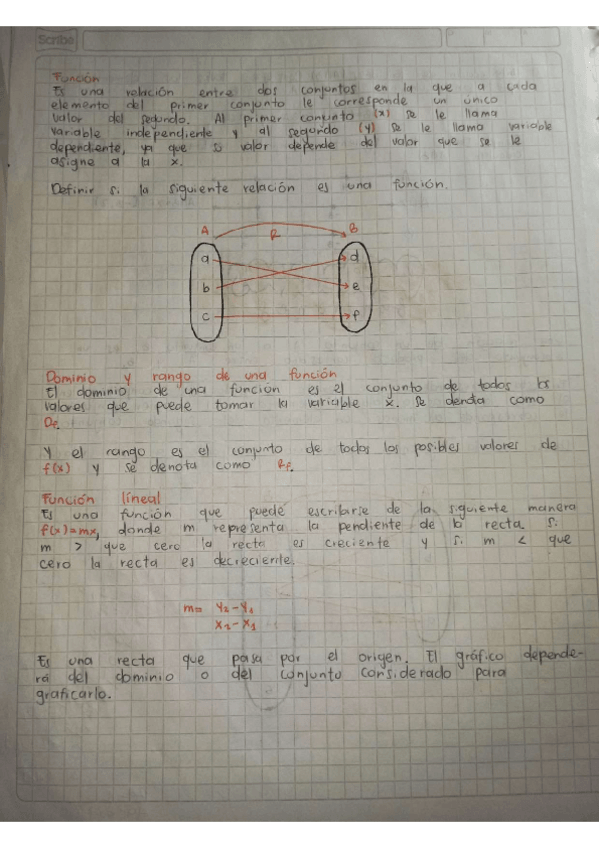 Scribe
Función
Es una relación entre dos conjuntos en la que a cada
elemento del primer conjunto le corresponde un unico
valor del segundo. Al primer conjunto (x) se le llama
variable independiente y al segundo (y) se le llama variable
dependiente, ya que si valor depende del valor que se le
asigne a la x.
Definir si la siguiente relación es una función.
A R B
a d
b e
c f
Dominio y rango de una función
El dominio de una función es el conjunto de todos los
valores que puede tomar la variable x. se denota como
Df.
Y el rango es el conjunto de todos los posibles valores de
f(x) y se denota como Rf.
Función líneal
Es una función que puede escribirse de la siguiente manera
f(x)=mx, donde m representa la pendiente de la recta. Si
m > que cero la recta es creciente y si m < que
cero la recta es decreciente.
m= y₂-y₁
x₂-x₁
Es una recta que pasa por el origen. El gráfico depende-
rá del dominio o del conjunto considerado para
graficarlo.